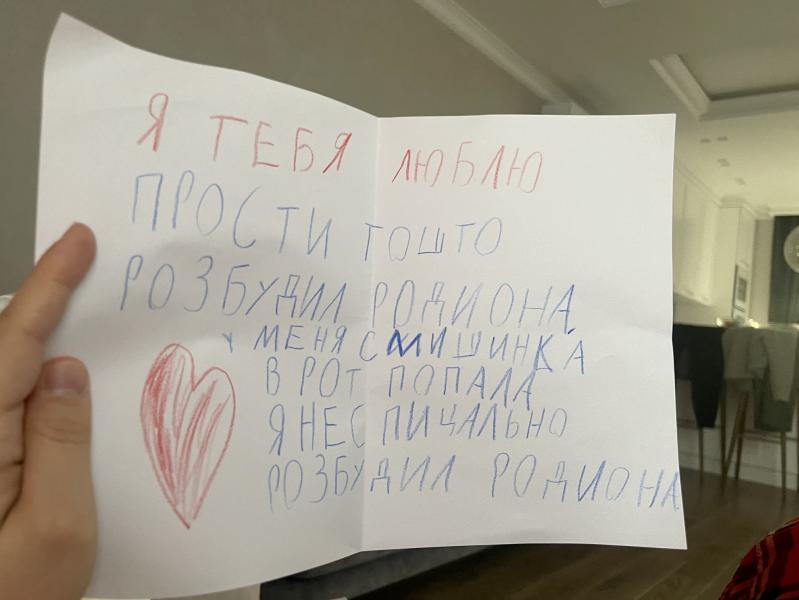 Я ТЕБЯ ЛЮБЛЮ
ПРОСТИ ТОШТО
РОЗБУДИЛ РОДИОНА
У МЕНЯ СМИШИНКА
В РОТ ПОПАЛА
Я НЕС ПИЦАЛЬНО
РОЗБУДИЛ РОДИОНА